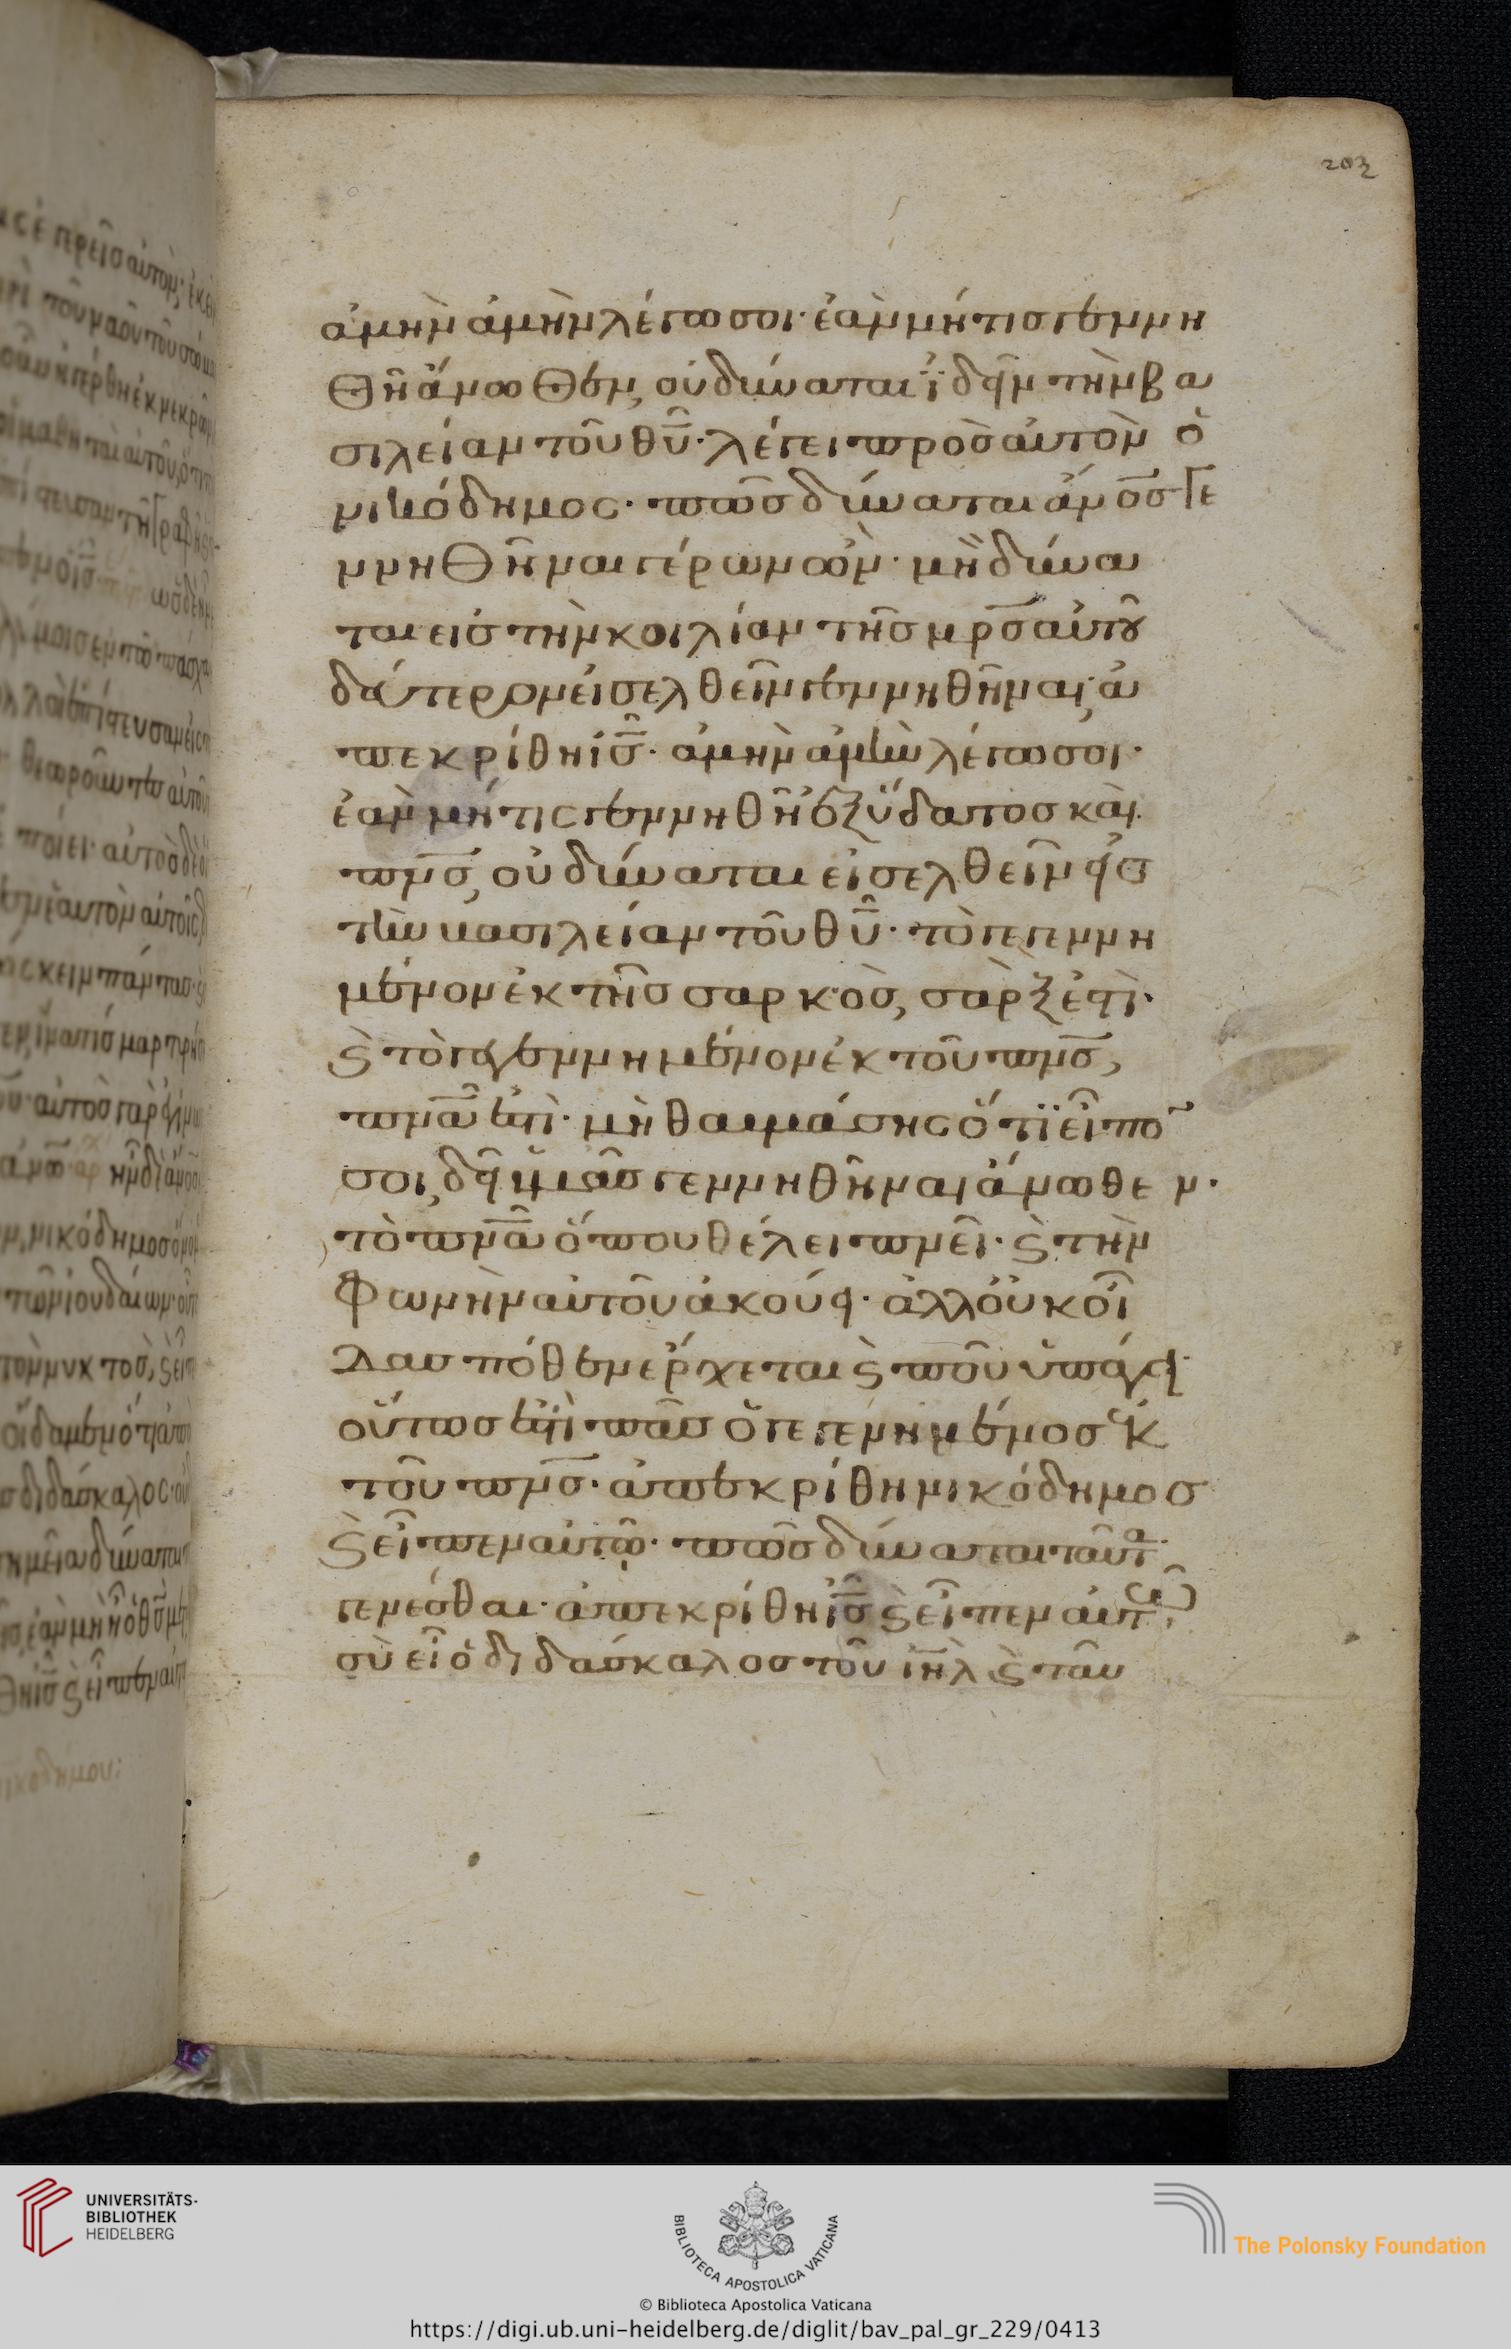 203
ἀμὴν ἀμὴν λέγω σοι· ἐὰν μή τις γεννη
θῆ ἄνωθεν, οὐ δύναται ἰδεῖν τὴν βα
σιλείαν τοῦ θυ̅· λέγει πρὸς αὐτὸν ὁ
νικόδημος· πῶς δύναται ἄνος̅ γε
ννηθῆναι γέρων ὤν· μὴ δύνα
ται εἰς τὴν κοιλίαν τῆς μρς̅ αὐτοῦ
δεύτερον εἰσελθεῖν γεννηθῆναι; ἀ
πεκρίθη ις̅· ἀμὴν ἀμὴν λέγω σοι·
ἐὰν μή τις γεννηθῆ ἐξ ὕδατος καὶ
πνς̅, οὐ δύναται εἰσελθεῖν εἰς
τὴν βασιλείαν τοῦ θυ̅· τὸ γεγεννη
μένον ἐκ τῆς σαρκὸς, σὰρξ ἐστὶ·
ϗ τὸ γεγεννημένον ἐκ τοῦ πνς̅,
πνα̅ ἐστὶ· μὴ θαυμάσης ὅτι εἶπο̅
σοι, δεῖ ὑμᾶς γεννηθῆναι ἄνωθεν·
τὸ πνα̅ ὅπου θέλει πνεῖ· ϗ τὴν
φωνὴν αὐτοῦ ἀκούει· ἀλλ' οὐκ οἶ
δας πόθεν ἔρχεται ϗ ποῦ ὑπάγει·
οὕτως ἐστὶ πᾶς ὁ γεγενημένος ἐκ
τοῦ πνς̅· ἀπεκρίθη νικόδημος
ϗ εἶπεν αὐτῷ· πῶς δύναται ταῦτα
γενέσθαι· ἀπεκρίθη ις̅ ϗ εἶπεν αὐτῷ·
σὺ εἶ ὁ διδάσκαλος τοῦ ιηλ̅ ϗ ταῦ
UNIVERSITÄTS-
BIBLIOTHEK
HEIDELBERG
BIBLIOTECA APOSTOLICA VATICANA
© Biblioteca Apostolica Vaticana
The Polonsky Foundation
https://digi.ub.uni-heidelberg.de/diglit/bav_pal_gr_229/0413